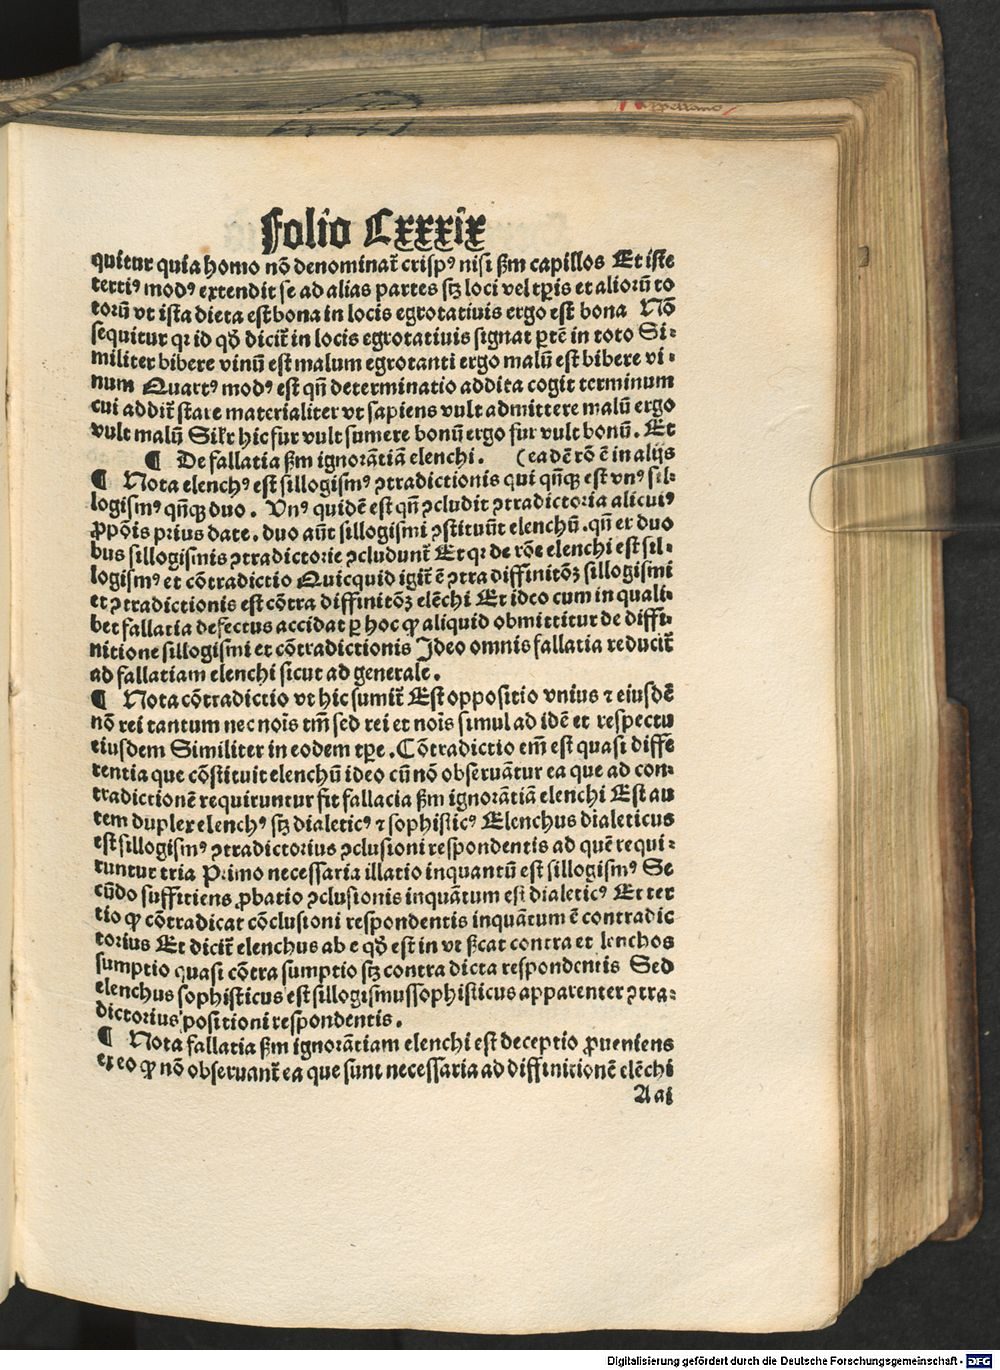 Folio Lxxxix
quitur quia homo nō denominat̄ crispꝰ nisi ẜm capillos Et iste
tertiꝰ modꝰ extendit se ad alias partes scꝫ loci vel tꝑis et aliorū to
torū vt ista dieta est bona in locis egrotatiuis ergo est bona Nō
sequitur qꝛ id qď dicit̄ in locis egrotatiuis signat ꝑtē in toto Si⸗
militer bibere vinū est malum egrotanti ergo malū est bibere vi⸗
num Quartꝰ modꝰ est qn̄ determinatio addita cogit terminum
cui addit̄ stare materialiter vt sapiens vult admittere malū ergo
vult malū Silr̄ hic fur vult sumere bonū ergo fur vult bonū. Et
¶ De fallatia ẜm ignorātiā elenchi. (eadē rō ē in alijs
¶ Nota elenchꝰ est sillogismꝰ ꝯtradictionis qui qn̄qꝫ est vnꝰ sil⸗
logismꝰ qn̄qꝫ duo. Vnꝰ quidē est qn̄ ꝯcludit ꝯtradictoria alicuiꝰ
ꝓpōis prius date. duo aūt sillogismi ꝯstituūt elenchū. qn̄ ex duo
bus sillogismis ꝯtradictorie ꝯcludunt̄ Et qꝛ de rōe elenchi est sil⸗
logismꝰ et cōtradictio Quicquid igit̄ ē ꝯtra diffinitōꝫ sillogismi
et ꝯtradictionis est cōtra diffinitōꝫ elēchi Et ideo cum in quali⸗
bet fallatia defectus accidat ꝑ hoc ꝙ aliquid obmittitur de diffi⸗
nitione sillogismi et cōtradictionis Ideo omnis fallatia reducit̄
ad fallatiam elenchi sicut ad generale.
¶ Nota cōtradictio vt hic sumit̄ Est oppositio vnius ⁊ eiusdē
nō rei tantum nec nōis tm̄ sed rei et nōis simul ad idē et respectu
eiusdem Similiter in eodem tꝑe. Cōtradictio em̄ est quasi differē
tentia que cōstituit elenchū ideo cū nō obseruātur ea que ad con⸗
tradictionē requiruntur fit fallacia ẜm ignorātiā elenchi Est au
tem duplex elenchꝰ scꝫ dialeticꝰ ⁊ sophisticꝰ Elenchus dialeticus
est sillogismꝰ ꝯtradictorius ꝯclusioni respondentis ad quē requi⸗
runtur tria Primo necessaria illatio inquantū est sillogismꝰ Se
cūdo suffitiens ꝓbatio ꝯclusionis inquātum est dialeticꝰ Et ter
tio ꝙ cōtradicat cōclusioni respondentis inquātum ē contradic
torius Et dicit̄ elenchus ab e qď est in vt ẜcat contra et lenchos
sumptio quasi cōtra sumptio scꝫ contra dicta respondentis Sed
elenchus sophisticus est sillogismussophisticus apparenter ꝯtra⸗
dictorius positioni respondentis.
¶ Nota fallatia ẜm ignorātiam elenchi est deceptio ꝓueniens
ex eo ꝙ nō obseruant̄ ea que sunt necessaria ad diffinitionē elēchi
Aai
Digitalisierung gefördert durch die Deutsche Forschungsgemeinschaft - DFG